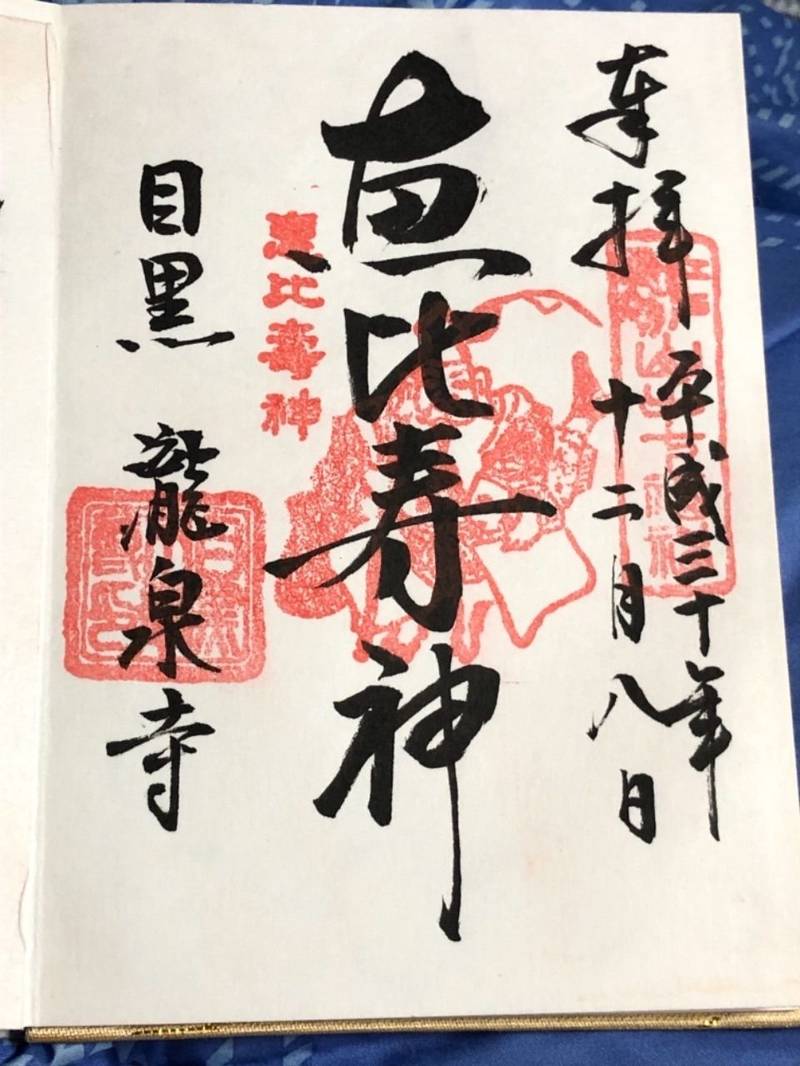 奉拝
平成三十年
十二月八日
恵比寿神
恵比寿神
目黒 瀧泉寺